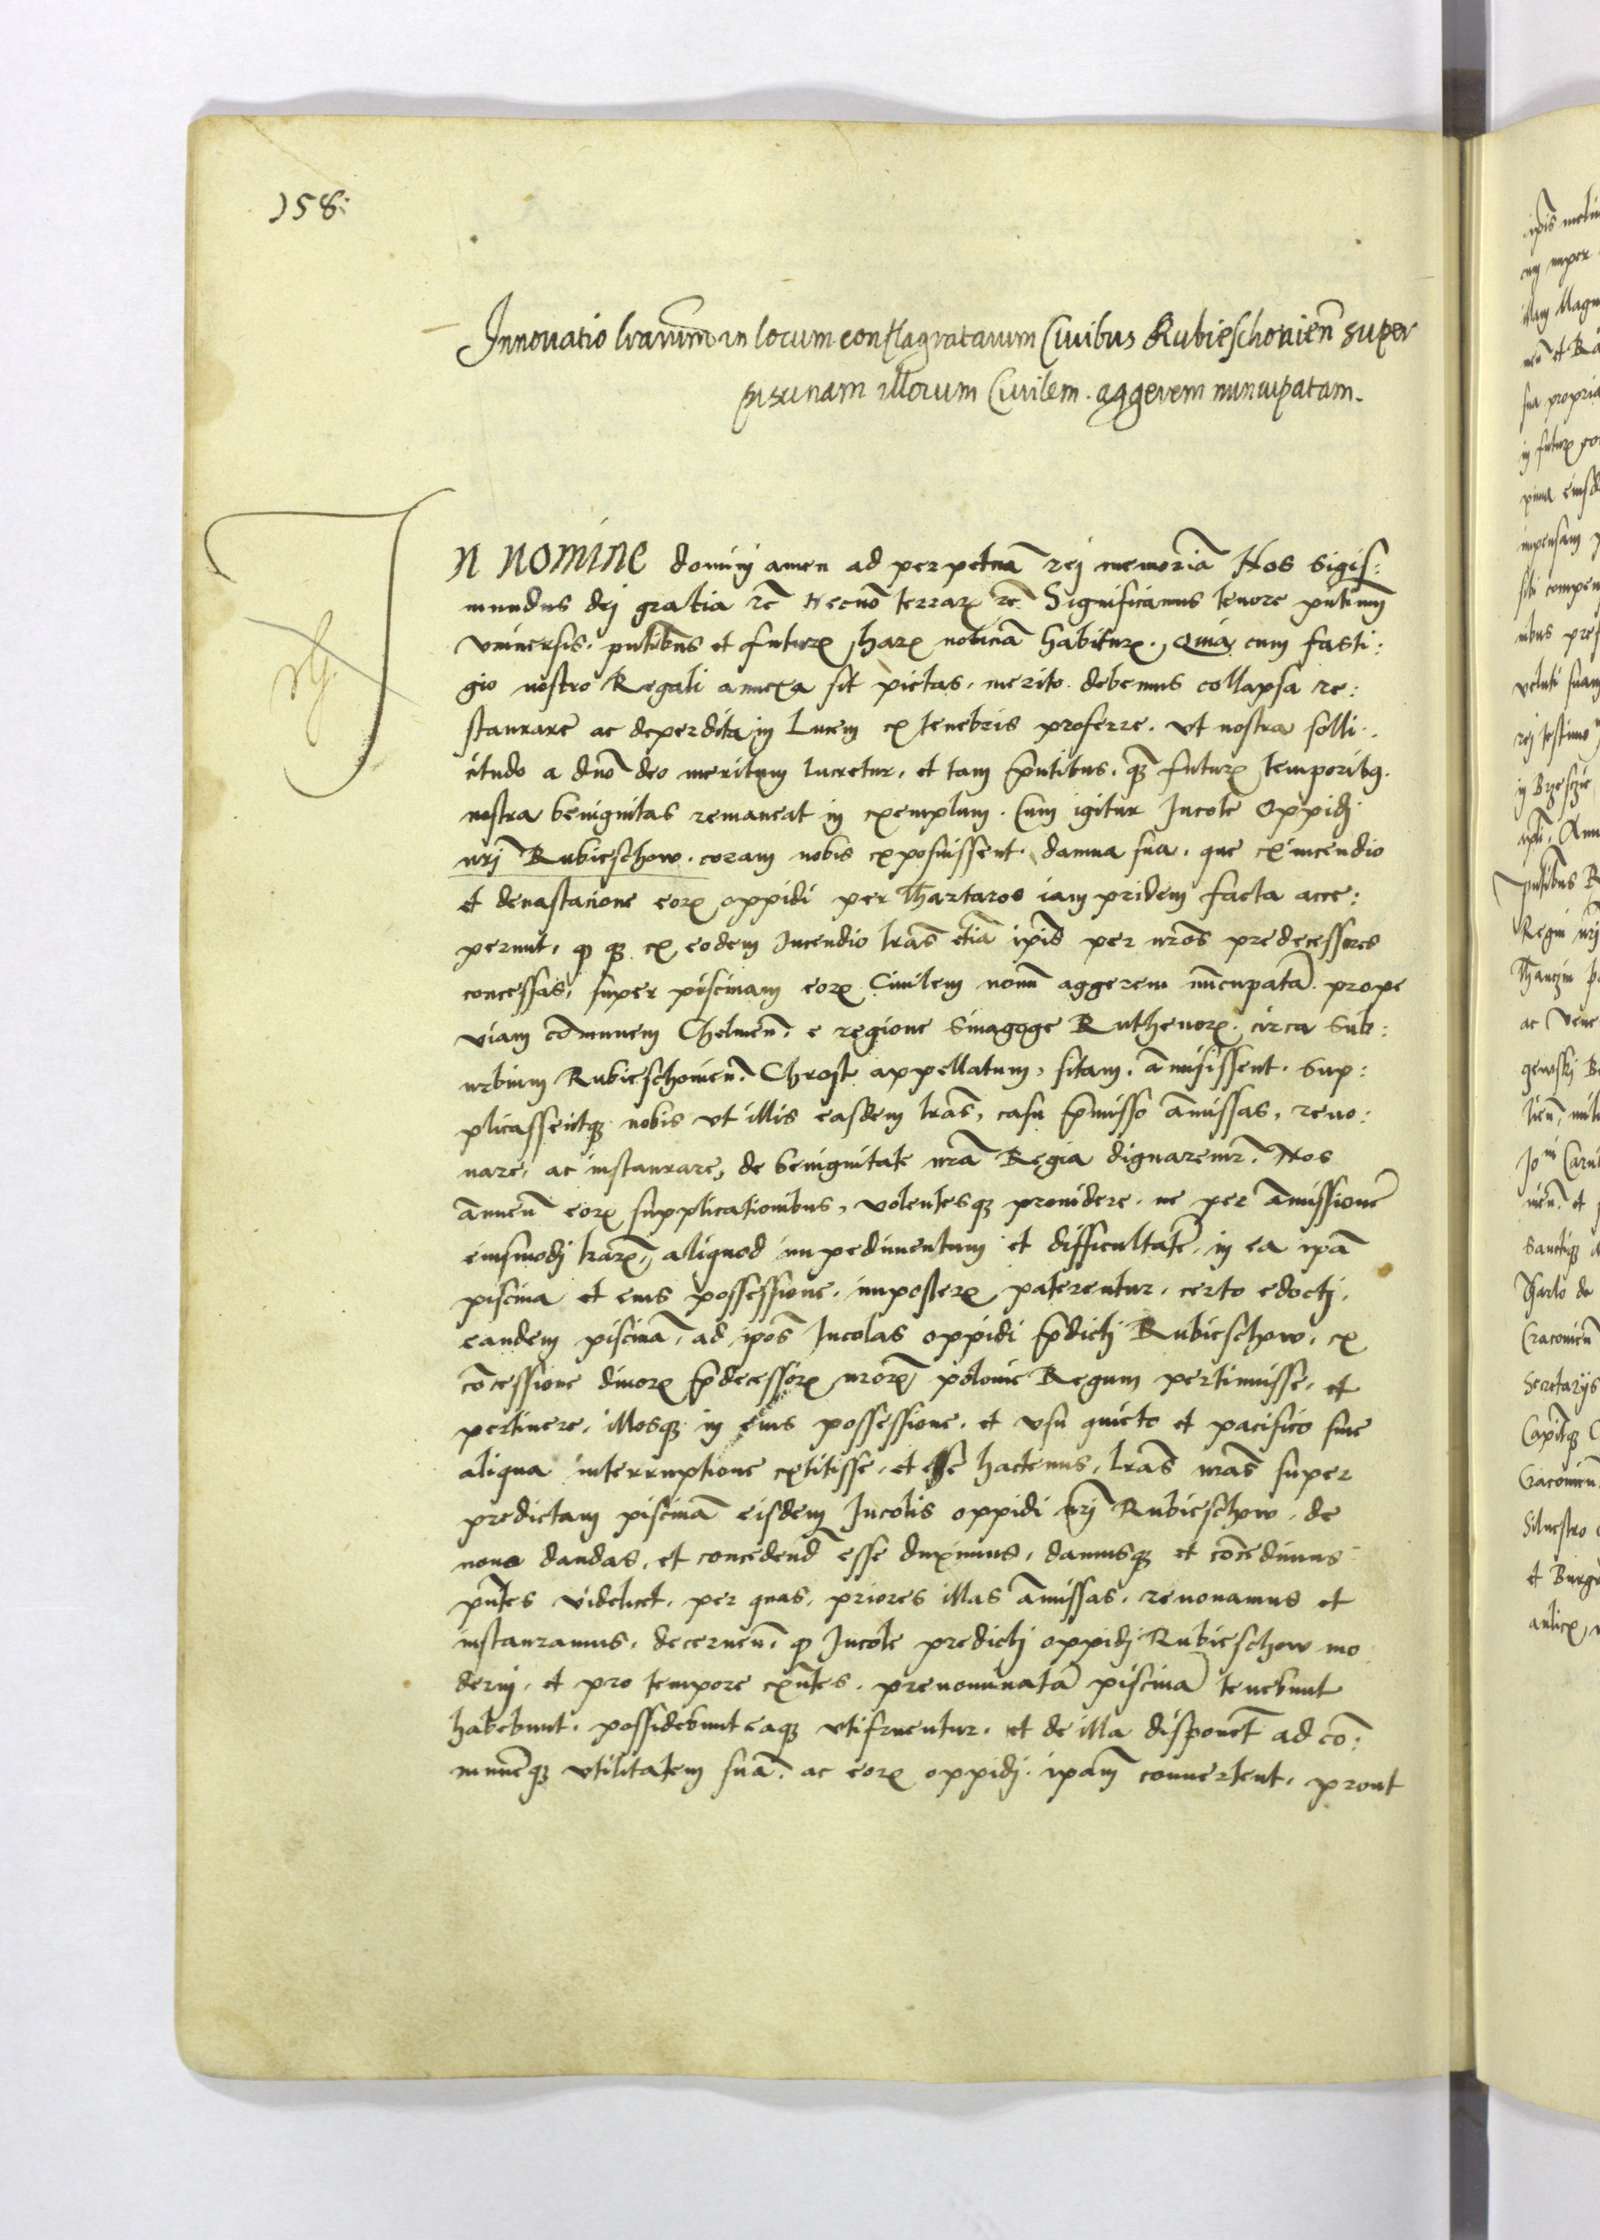 158:
Innouatio lrarum in locum conflagratarum Ciuibus Rubieschouien̄ super
piscinam illorum Ciuilem. aggerem nuncupatam.
In nomine dominj amen ad perpetuā rej memoriā Nos Sigis:
mundus dej gratia rc̄ Necnō terrarꝝ rc̄ Significamus tenore p̄ntium
vniuersis. p̄ntibus et futurꝝ harꝝ noticiā habiturꝝ. Quia cum fasti:
gio nostro Regali annexa sit pietas. merito debemus collapsa re:
staurare ac deperdita in Lucem ex tenebris proferre. vt nostra solli:
citudo a dn̄o deo meritum lucretur, et tam p̄ntibus. qꝫ futurꝝ temporibꝫ.
nostra benignitas remaneat in exemplum. Cum igitur Incole Oppidj
nrj Rubieschow. coram nobis exposuissent. damna sua. que ex incendio
et deuastatione eorꝝ oppidi per Thartaros iam pridem facta acce:
perunt, ꝙ qꝫ ex eodem Incendio lrās etiā ip̄is per nrōs predecessores
concessas, super piscinam eorꝝ Ciuilem nouū aggerem nūcupatā. prope
viam cōmunem Chelmen̄. e regione Sinagoge Ruthenorꝝ. circa Sub:
urbium Rubieschouien̄. Chrost appellatum, sitam. āmisissent. Sup:
plicassentqꝫ nobis vt illis easdem lrās, casu p̄misso āmissas, reno:
uare, ac instaurare, de benignitate nrā Regia dignaremr̄. Nos
ānuen̄ eorꝝ supplicationibus, volentesqꝫ prouidere. ne per āmissionē
eiusmodj lrarꝝ, aliquod impedimentum et difficultatē, in ea ip̄a
piscina et eius possessione, imposterꝝ paterentur. certo edoctj.
eandem piscinā, ad ip̄os Incolas oppidi p̄dictj Rubieschow, ex
cōcessione diuorꝝ p̄decessorꝝ nrōrꝝ polonie Regum pertinuisse, et
pertinere, illosqꝫ in eius possessione, et vsu quieto et pacifico sine
aliqua interruptione extitisse, et esse hactenus, lrās nrās super
predictam piscinā eisdem Incolis oppidi nrj Rubieschow, de
nouo dandas, et concedend̄ esse duximus, damusqꝫ et cōcedimus
p̄ntes videlicet. per quas, priores illas āmissas. renouamus et
instauramus, decernen̄. ꝙ Incole predictj oppidj Rubieschow mo
dernj, et pro tempore exn̄tes. prenominatā piscinā tenebunt
habebunt. possidebunt eaqꝫ vtifruentur. et de illa disponēt ad cō:
munēqꝫ vtilitatem suā. ac eorꝝ oppidj. ipam̄ conuertent, prout